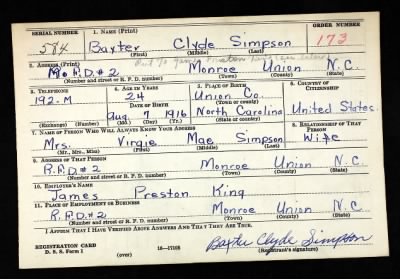 SERIAL NUMBER 1. NAME (Print) ORDER NUMBER
584 Baxter Clyde Simpson 173
(First) (Middle) (Last)
2. ADDRESS (Print)
R.F.D.#2 Monroe Union N.C.
(Number and street or R. F. D. number) (Town) (County) (State)
3. TELEPHONE 4. AGE IN YEARS 5. PLACE OF BIRTH 6. COUNTRY OF CITIZENSHIP
192-M 24 Union Co.
DATE OF BIRTH (Town or county)
Aug. 7 1916 North Carolina United States
(Exchange) (No.) (Mo.) (Day) (Yr.) (State or country)
7. NAME OF PERSON WHO WILL ALWAYS KNOW YOUR ADDRESS 8. RELATIONSHIP OF THAT PERSON
Mrs. Virgie Mae Simpson Wife
(Mr., Mrs., Miss) (First) (Middle) (Last)
9. ADDRESS OF THAT PERSON
R.F.D.#2 Monroe Union N.C.
(Number and street or R. F. D. number) (Town) (County) (State)
10. EMPLOYER'S NAME
James Preston King
11. PLACE OF EMPLOYMENT OR BUSINESS
R.F.D.#2 Monroe Union N.C.
(Number and street or R. F. D. number) (Town) (County) (State)
I AFFIRM THAT I HAVE VERIFIED ABOVE ANSWERS AND THAT THEY ARE TRUE.
REGISTRATION CARD
D. S. S. Form 1 16—17105 Baxter Clyde Simpson
(over) (Registrant's signature)